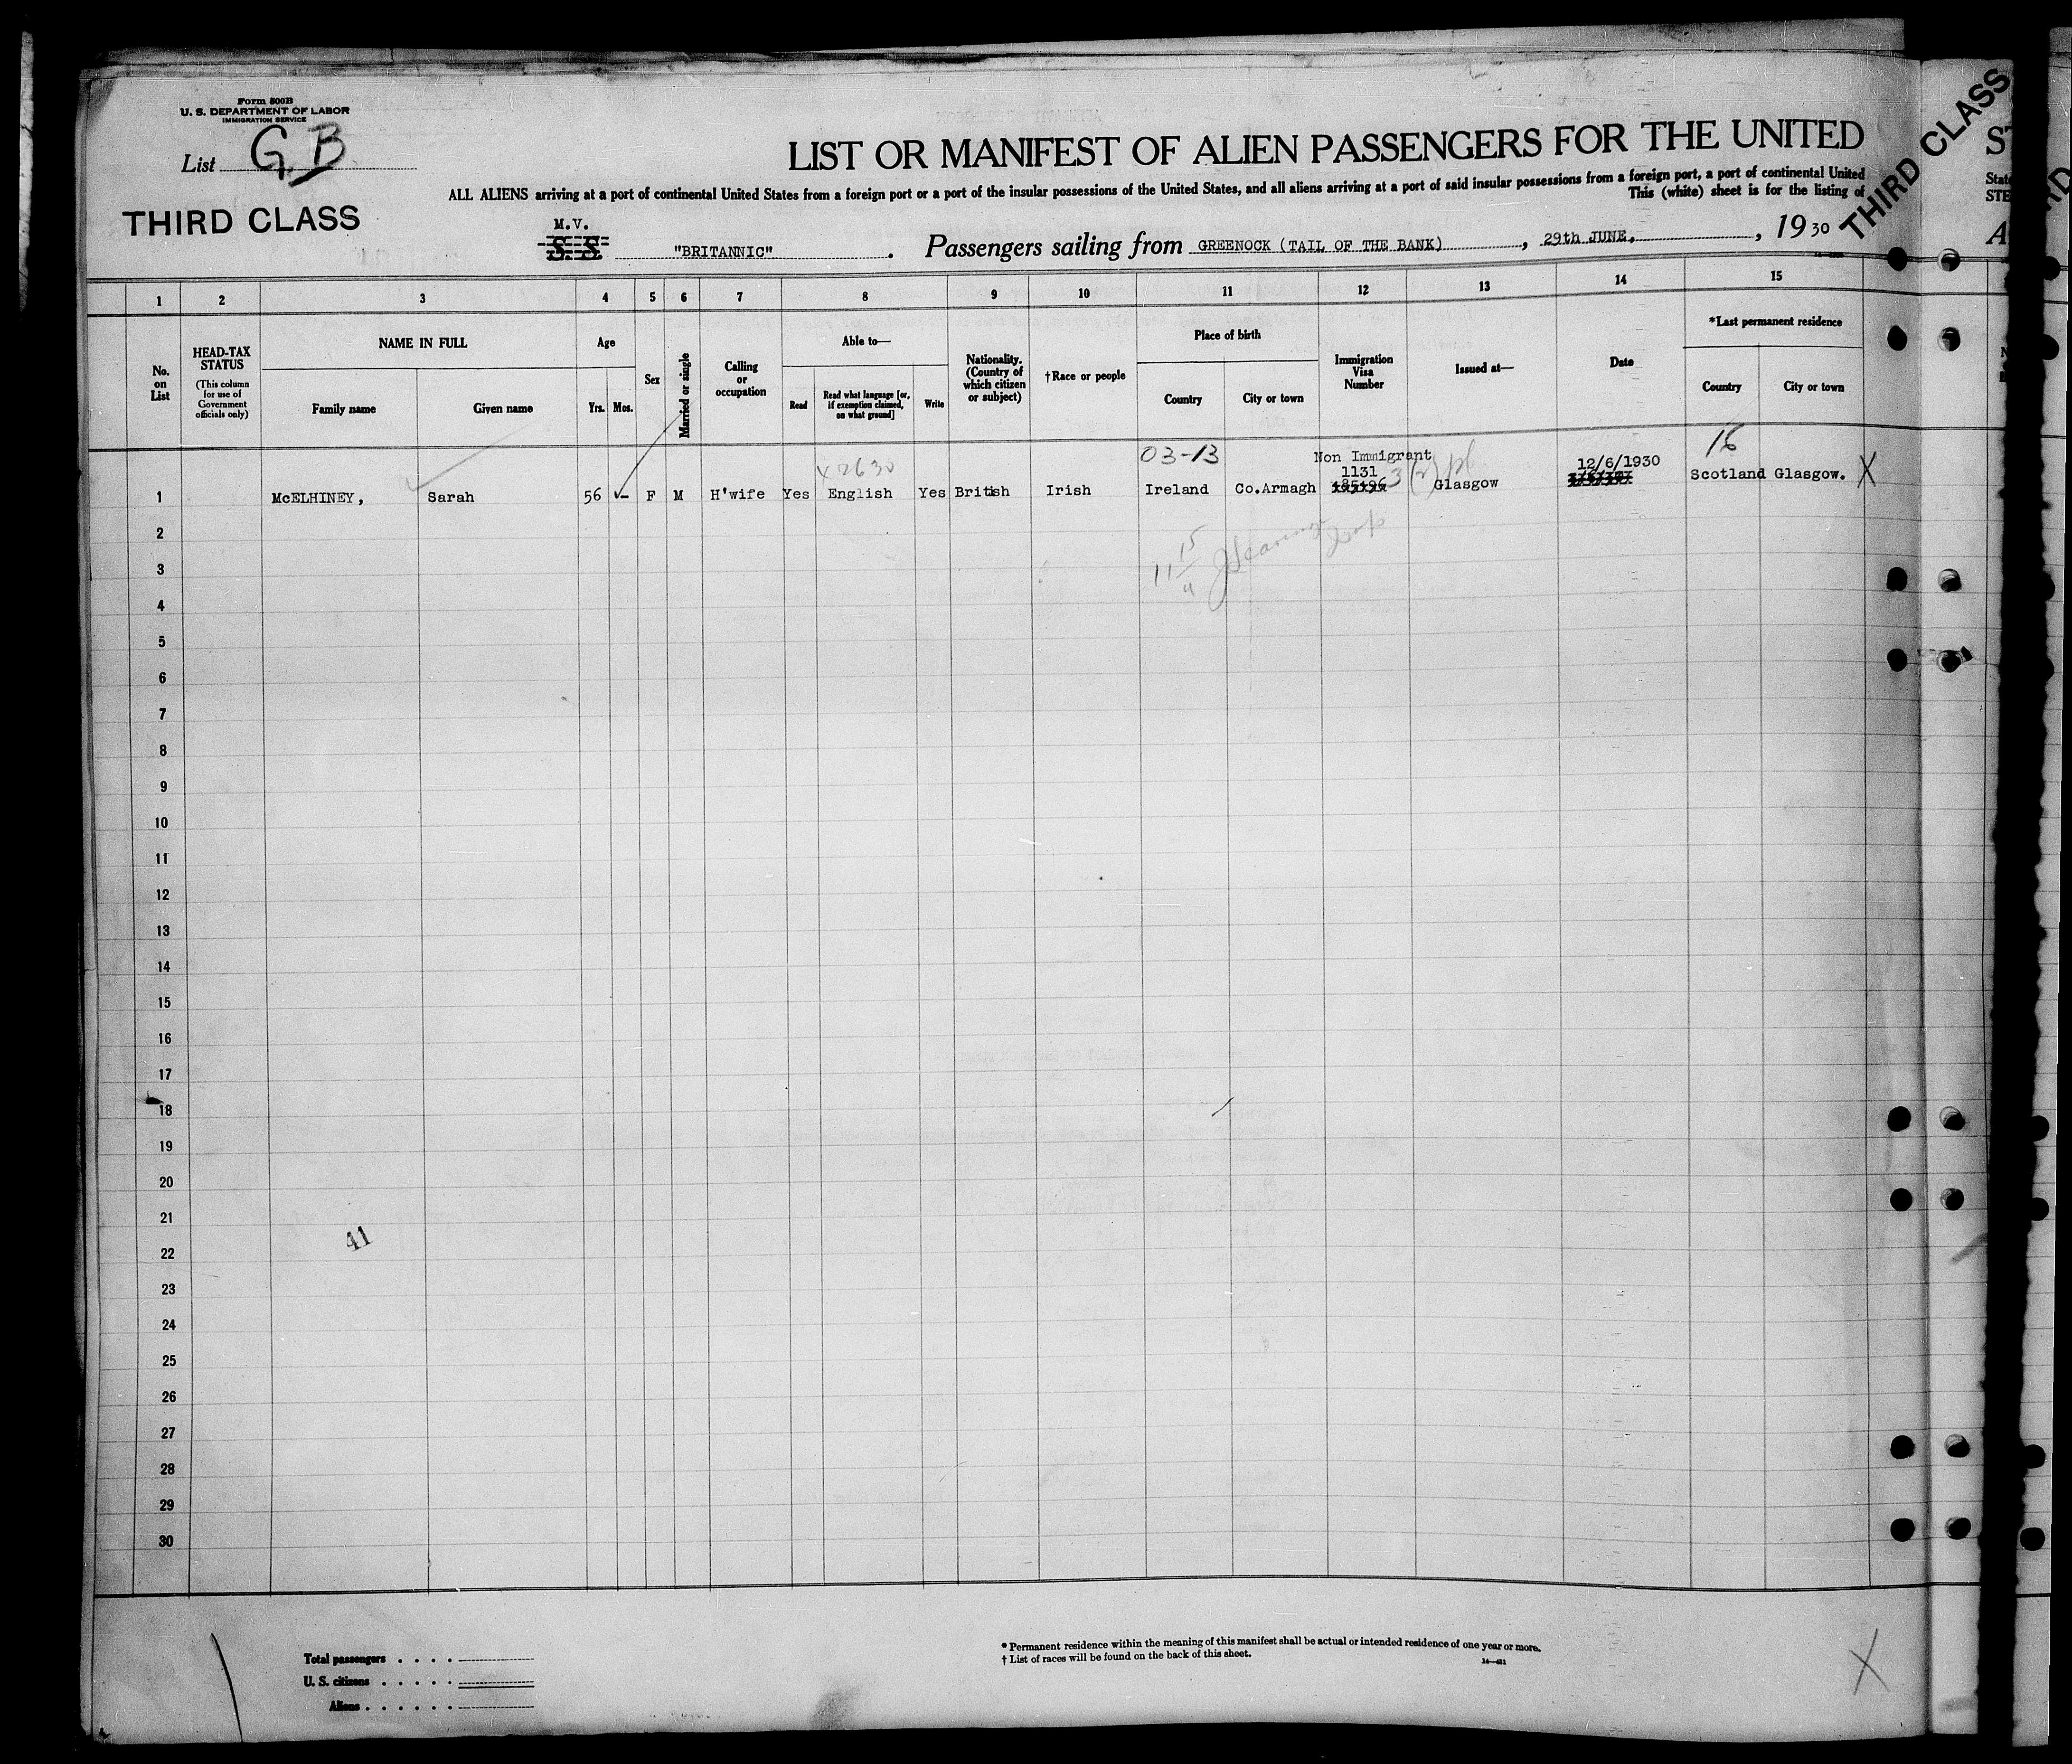 Form 500B
U. S. DEPARTMENT OF LABOR
IMMIGRATION SERVICE
List G.B
THIRD CLASS
LIST OR MANIFEST OF ALIEN PASSENGERS FOR THE UNITED
ALL ALIENS arriving at a port of continental United States from a foreign port or a port of the insular possessions of the United States, and all aliens arriving at a port of said insular possessions from a foreign port, a port of continental United
This (white) sheet is for the listing of
M.V.
S. S. "BRITANNIC" . Passengers sailing from GREENOCK (TAIL OF THE BANK) , 29th JUNE, , 19 30
THIRD CLASS
1 2 3 4 5 6 7 8 9 10 11 12 13 14 15
No. on List
HEAD-TAX STATUS
(This column for use of Government officials only)
NAME IN FULL
Family name Given name
Age
Yrs. Mos.
Sex
Married or single
Calling or occupation
Able to—
Read Read what language [or, if exemption claimed, on what ground] Write
Nationality. (Country of which citizen or subject)
†Race or people
Place of birth
Country City or town
Immigration Visa Number
Issued at—
Date
*Last permanent residence
Country City or town
03-13 Non Immigrant 16
42630 1131 12/6/1930
1 McELHINEY, Sarah 56 - F M H'wife Yes English Yes British Irish Ireland Co.Armagh Glasgow Scotland Glasgow. X
2
3
4
5
6
7
8
9
10
11
12
13
14
15
16
17
18
19
20
21
41
22
23
24
25
26
27
28
29
30
Total passengers . . . .
U. S. citizens . . . . .
Aliens . . . . . .
* Permanent residence within the meaning of this manifest shall be actual or intended residence of one year or more.
† List of races will be found on the back of this sheet.
X